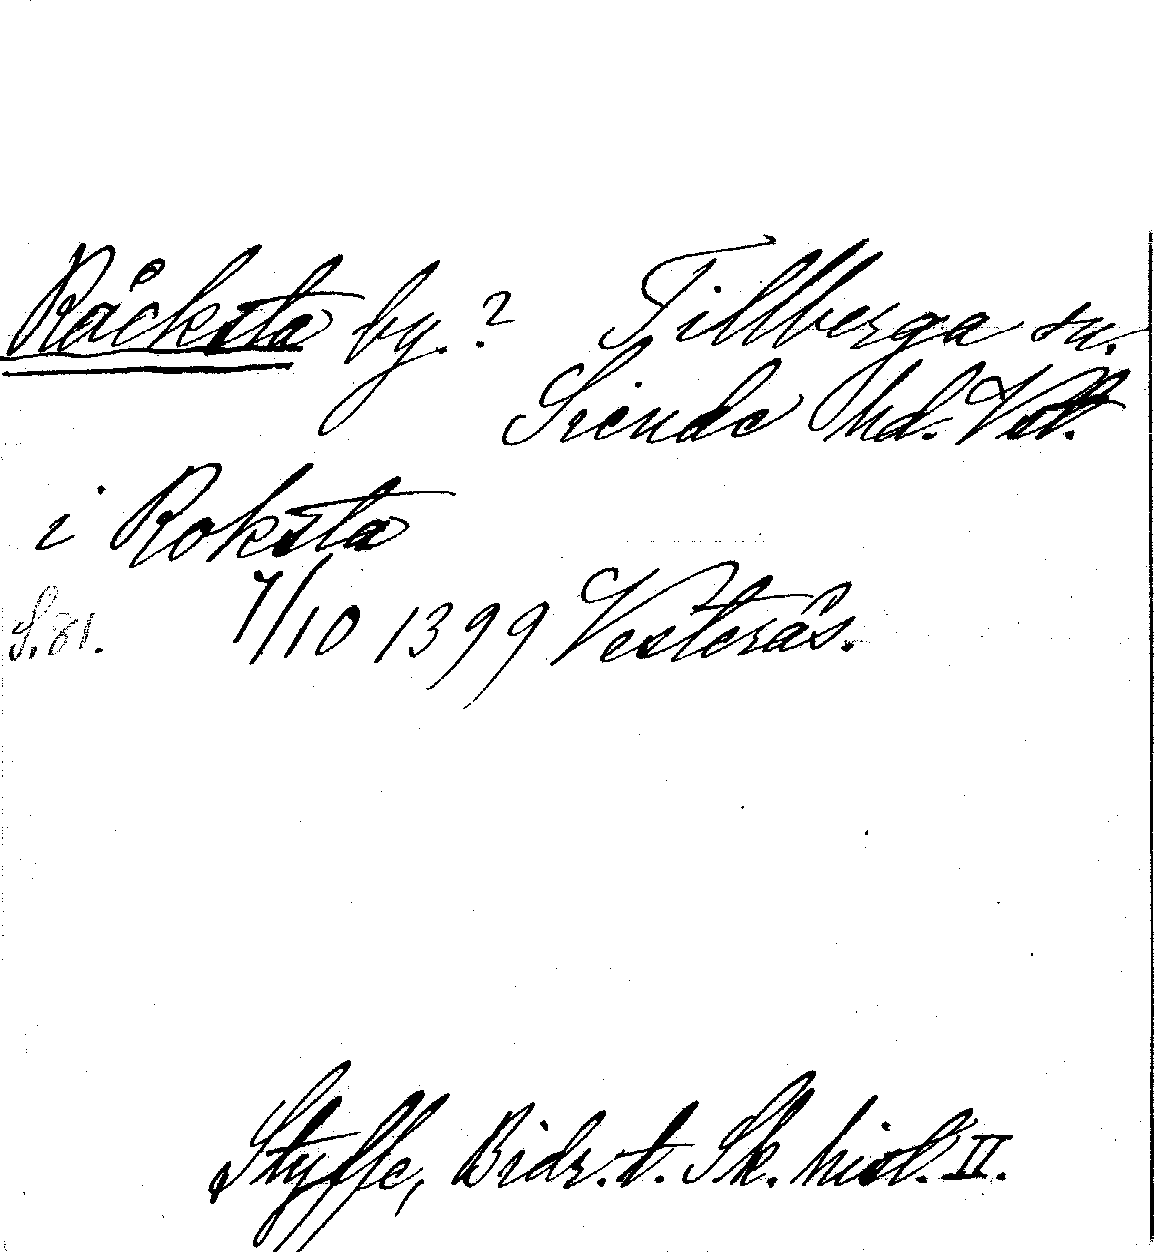 Råcksta by.? Tillberga sn.
Siende hd. Vstl.
i Roksta
S. 81. 7/10 1399 Vesterås.
Styffe, Bidr. t. Sk. hist. II.